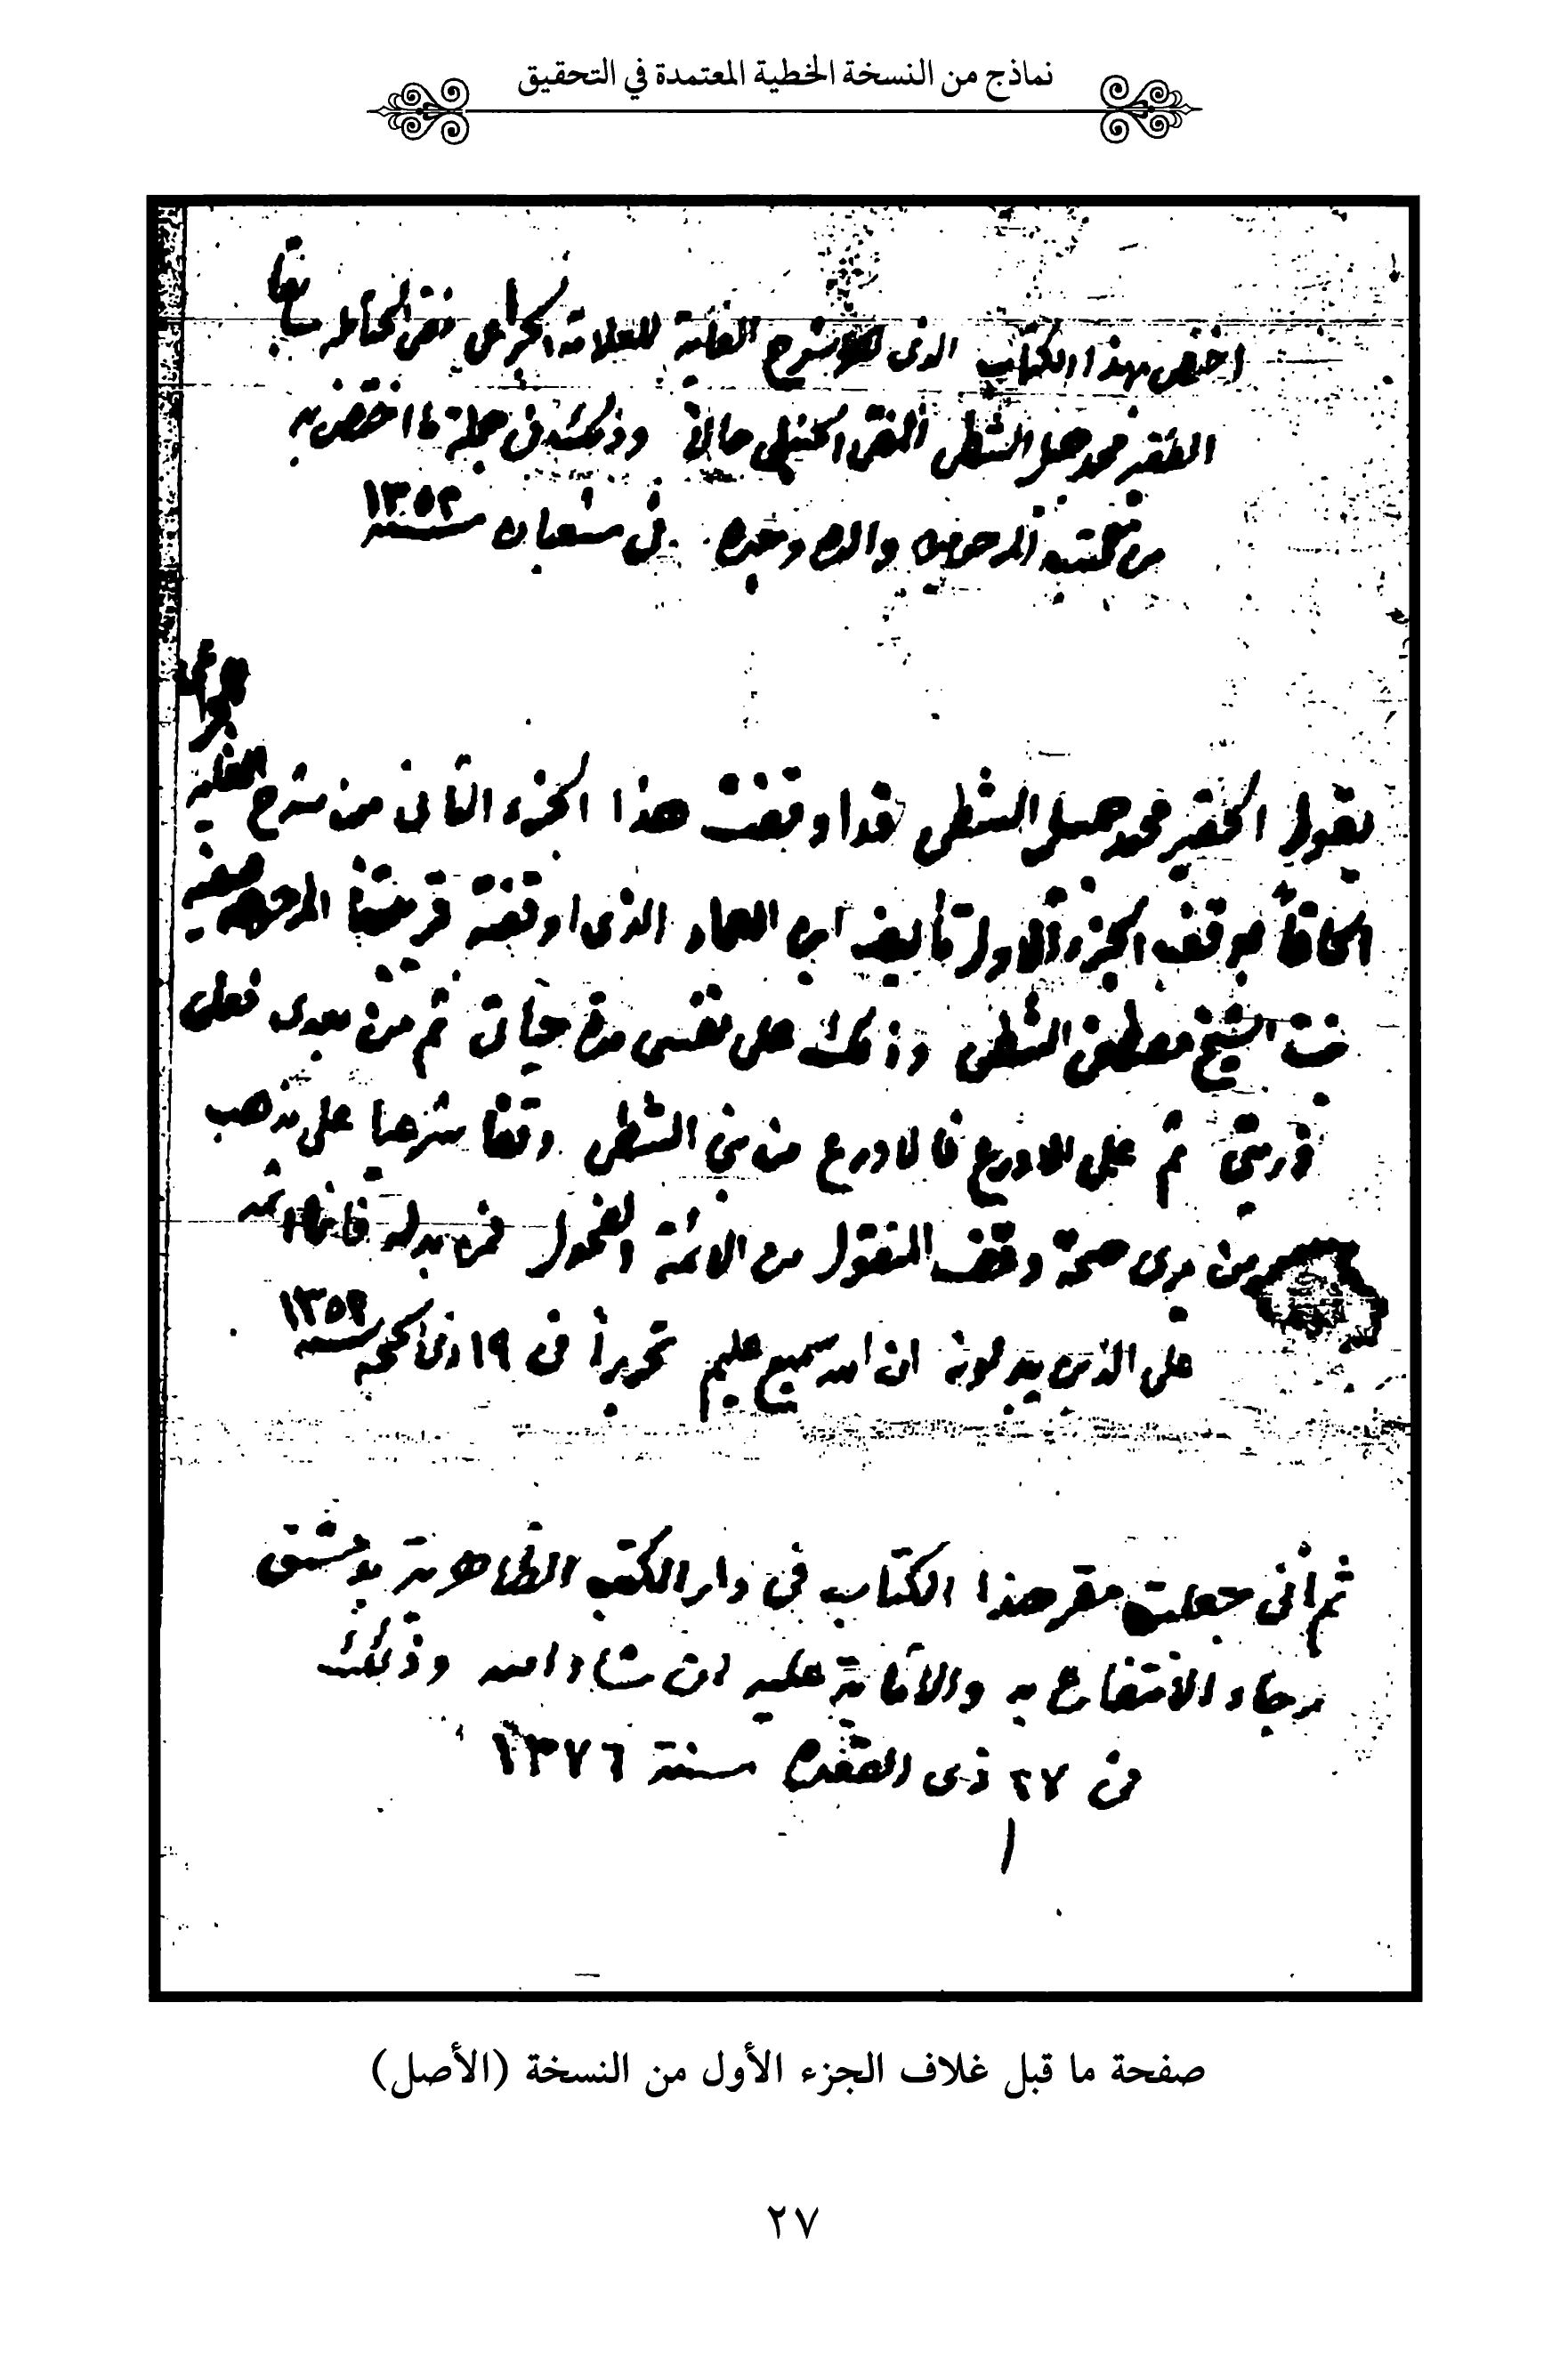 نماذج من النسخة الخطية المعتمدة في التحقيق
اختص بهذا الكتاب الذي هو شرح الغاية للعلامة الجراعي مفتي الحنابلة سابقا
الفقير محمد جميل الشطي المفتي الحنبلي حالاً وذلك في جملة ما اختص به
من مكتبة المرحومين والده وجده في شعبان سنة ١٣٥٢
الجراعي
يقول الحقير محمد جميل الشطي قد اوقفت هذا الجزء الثاني من شرح الغاية
الحاقاً بوقف الجزء الاول تأليف ابن العماد الذي اوقفته قريبتنا المرحومة صفية
بنت الشيخ مصطفى الشطي وذلك على نفسي مدة حياتي ثم من بعدي فعلى
ذريتي ثم على الاورع فالاورع من بني الشطي وقفا شرعيا على مذهب
من يرى صحة وقف المنقول من الائمة الفحول فمن بدله فانما اثمه
على الذين يبدلونه ان الله سميع عليم تحريراً في ١٩ ذي الحجة سنة
ثم أني جعلت مقر هذا الكتاب في دار الكتب الظاهرية بدمشق
رجاء الانتفاع به والاثابة عليه ان شاء الله وذلك
في ٢٧ ذي القعدة سنة ١٣٧٦
صفحة ما قبل غلاف الجزء الأول من النسخة (الأصل)
٢٧